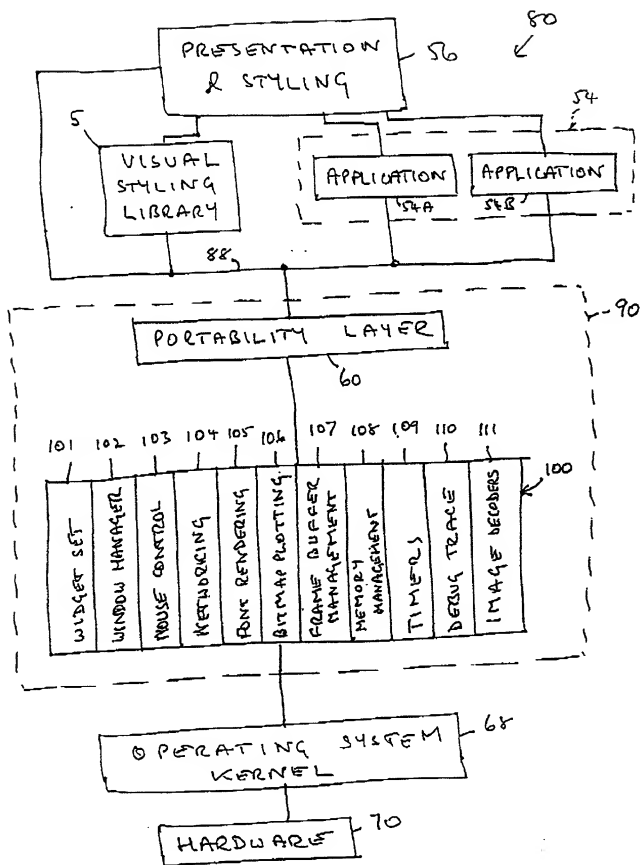 80
PRESENTATION
& STYLING
56
54
5
VISUAL
STYLING
LIBRARY
APPLICATION
APPLICATION
54A
54B
88
90
PORTABILITY LAYER
60
101 102 103 104 105 106 107 108 109 110 111
100
WIDGET SET
WINDOW MANAGER
MOUSE CONTROL
NETWORKING
FONT RENDERING
BITMAP PLOTTING
FRAME BUFFER
MANAGEMENT
MEMORY
MANAGEMENT
TIMERS
DEBUG TRACE
IMAGE DECODERS
OPERATING SYSTEM
KERNEL
68
HARDWARE
70